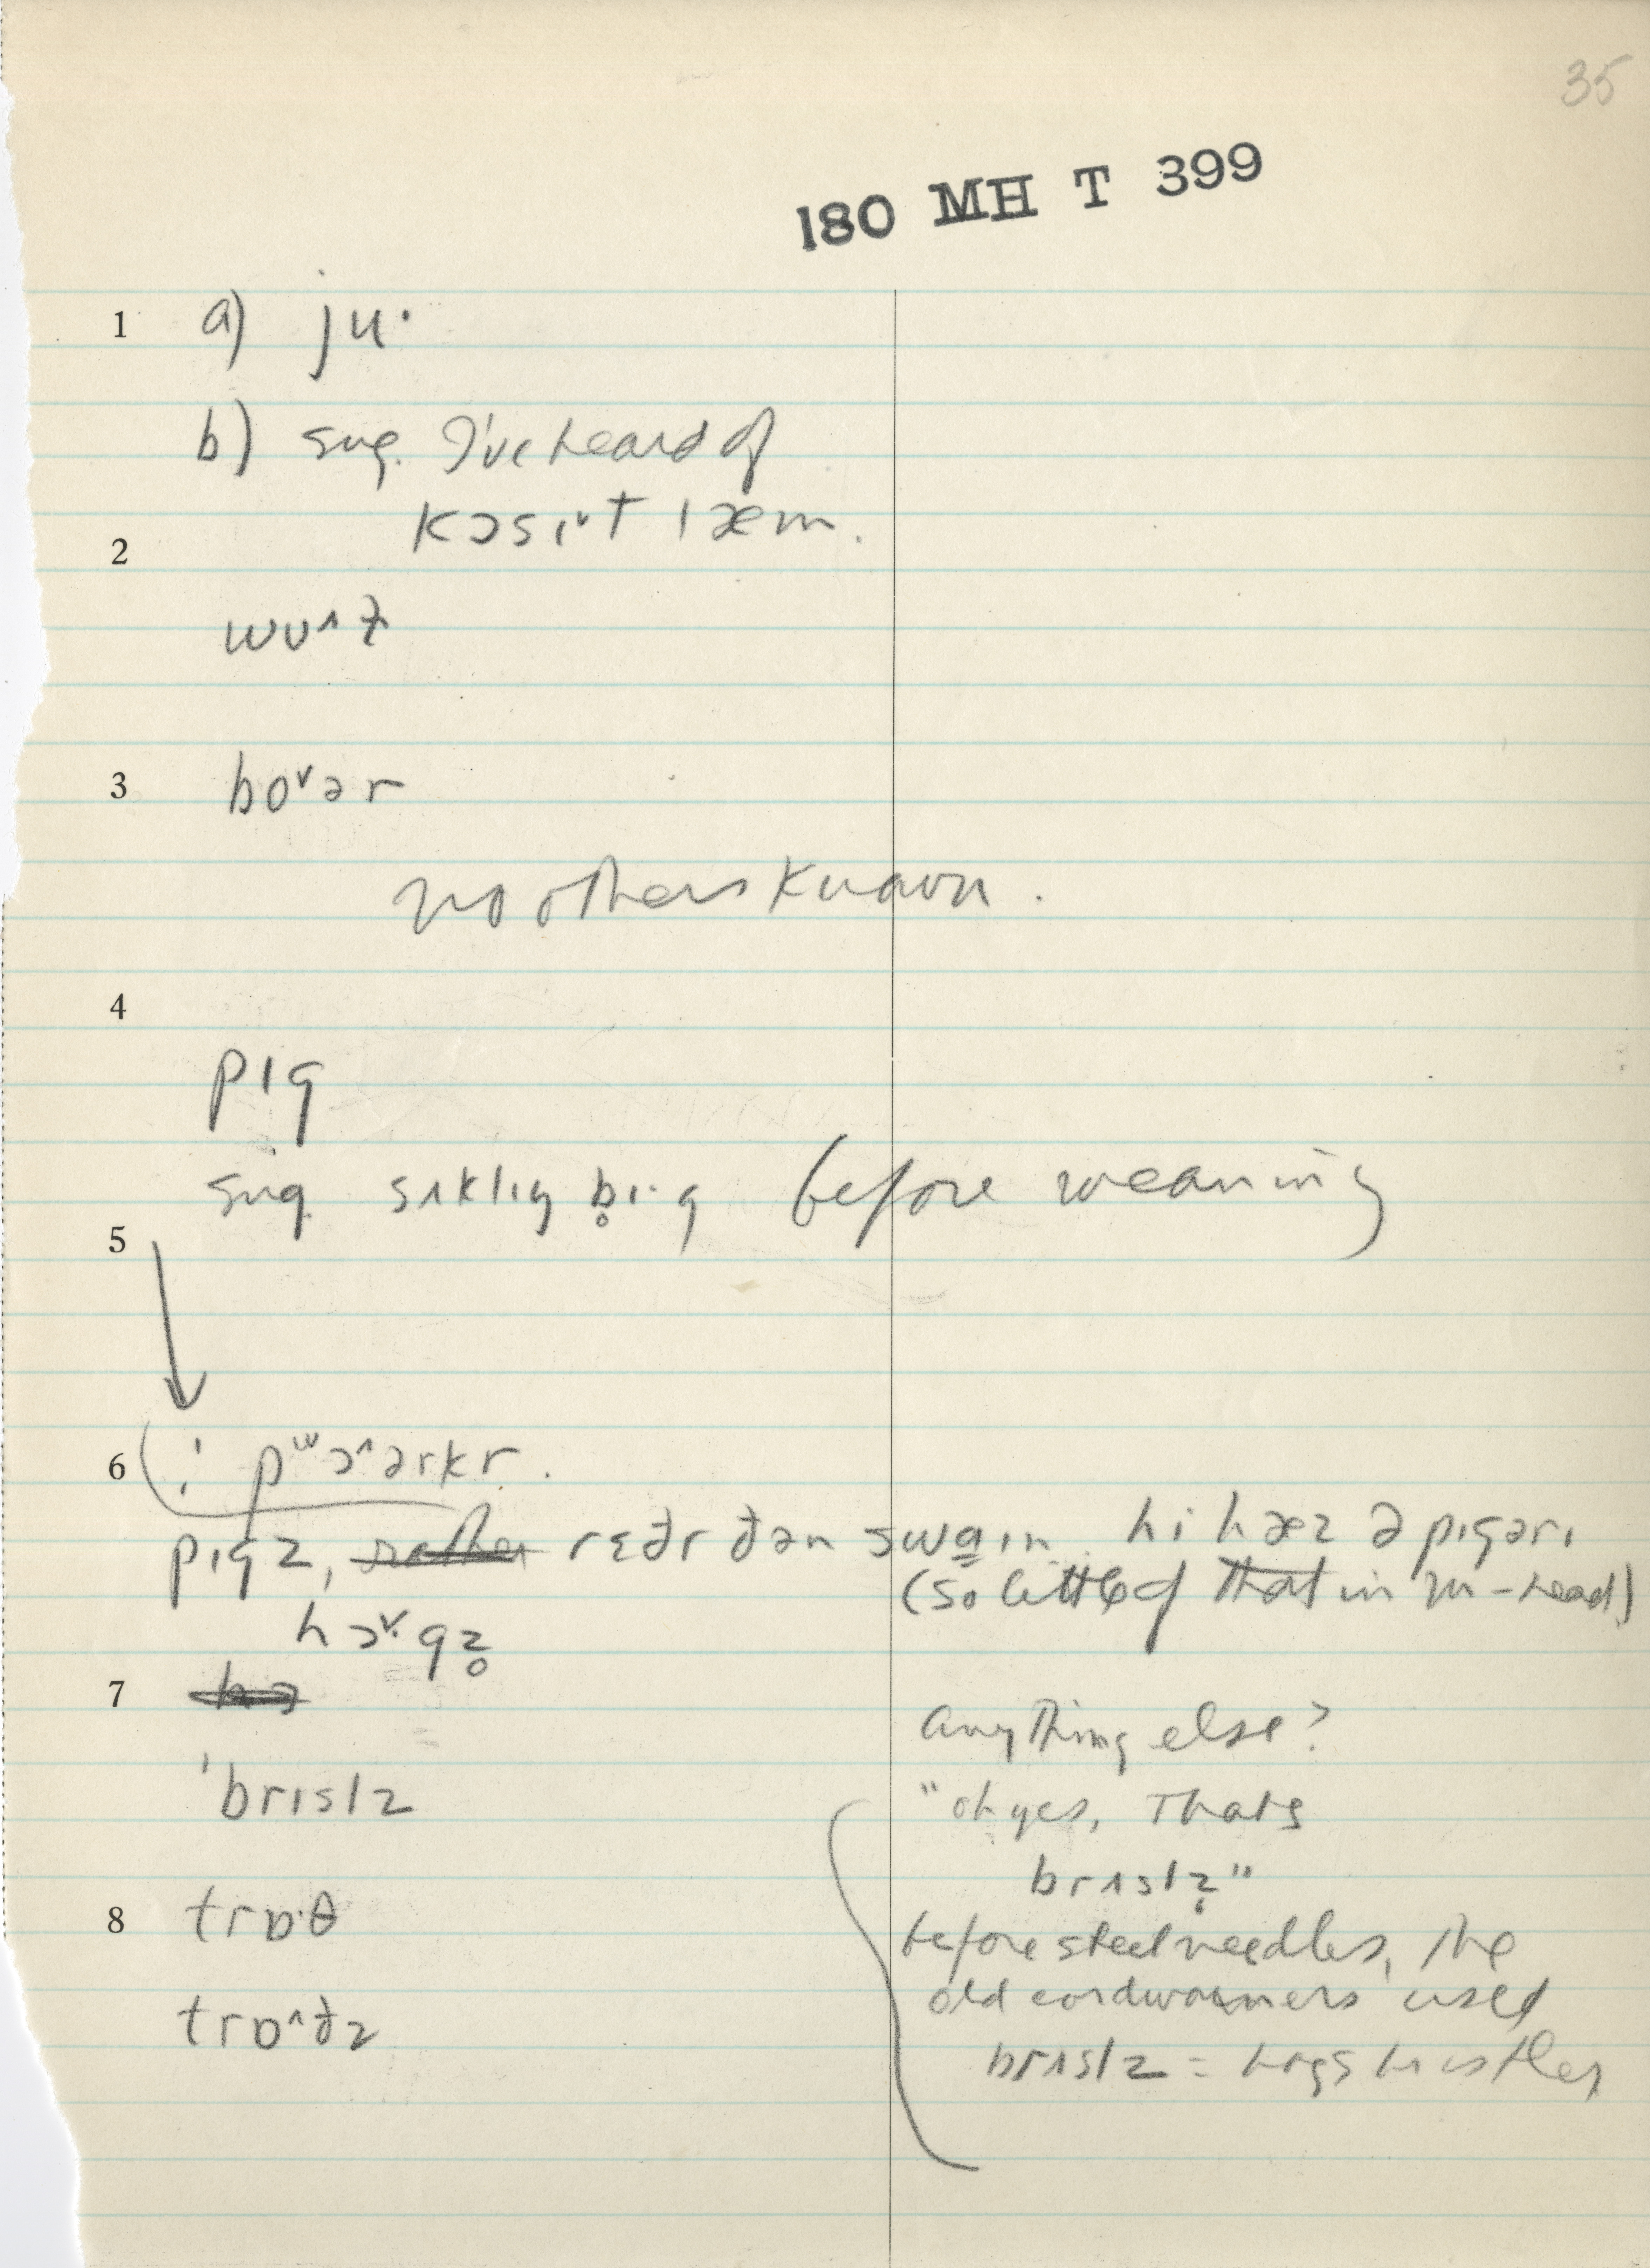 35
180 MH T 399
1 a) ju·
b) sug. I've heard of
kɔsɪ˅t læm.
2
wʊ^ɫ
3 bo˅ər
no others known.
4
pɪg
sug sʌklɪŋ b̥ɪ·g before weaning
5
6 ! pʷɔ^ərkr.
pɪgz, rather rɛðr ðən swaɪn. hi hæz ə pɪgərɪ
(so little of that in M-head)
hɔ˅·gz̥
7 hɔ
anything else?
ˈbrɪslz
"oh yes, Thats
brɪslz̥"
8 trɒ·θ
before steel needles, the
old cordwainers used
trɒ^ðz
brɪslz = hogs bristles